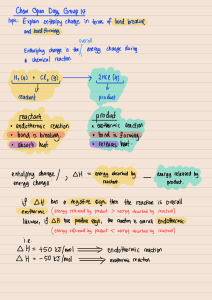 Chem Open Day Group 14
topic: Explain enthalpy change in terms of bond breaking
and bond forming
overall
Enthalphy change is the energy change during
a chemical reaction
H₂ (g) + Cl₂ (g) → 2HCl (g)
reactant product
reactant product
• endothermic reaction • exothermic reaction
• bond is breaking • bond is forming
• absorb heat • releases heat
enthalphy change/ , ΔH = energy absorbed by reactant — energy released by product
energy change
if ΔH has a negative sign then the reaction is overall
exothermic (energy released by product > energy absorbed by reactant)
likewise, if ΔH has positive sign, the reaction is overall endothermic
(energy released by product < energy absorbed by reactant)
i.e.
ΔH = +50 kJ/mol ⟹ endothermic reaction
ΔH = -50 kJ/mol ⟹ exothermic reaction